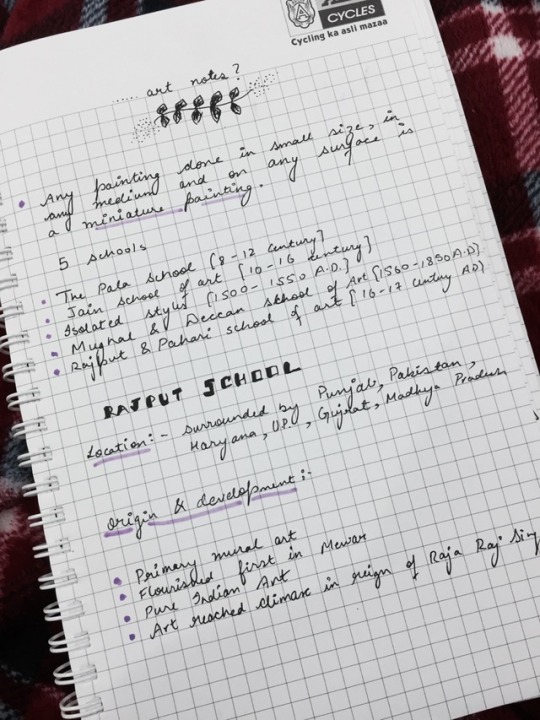 CYCLES
Cycling ka asli mazaa
art notes?
Any painting done in small size, in
any medium and on any surface is
a miniature painting.
5 schools
The Pala School [8-12 century]
Jain School of art [10-16 century]
Isolated styles [1500-1550 A.D.]
Mughal & Deccan School of Art [1560-1850 A.D]
Rajput & Pahari school of art [16-17 century AD]
RAJPUT SCHOOL
Location:- surrounded by Punjab, Pakistan,
Haryana, U.P., Gujrat, Madhya Pradesh
Origin & development:-
Primary mural art
Flourished first in Mewar
Pure Indian Art
Art reached climax in reign of Raja Raj Sing